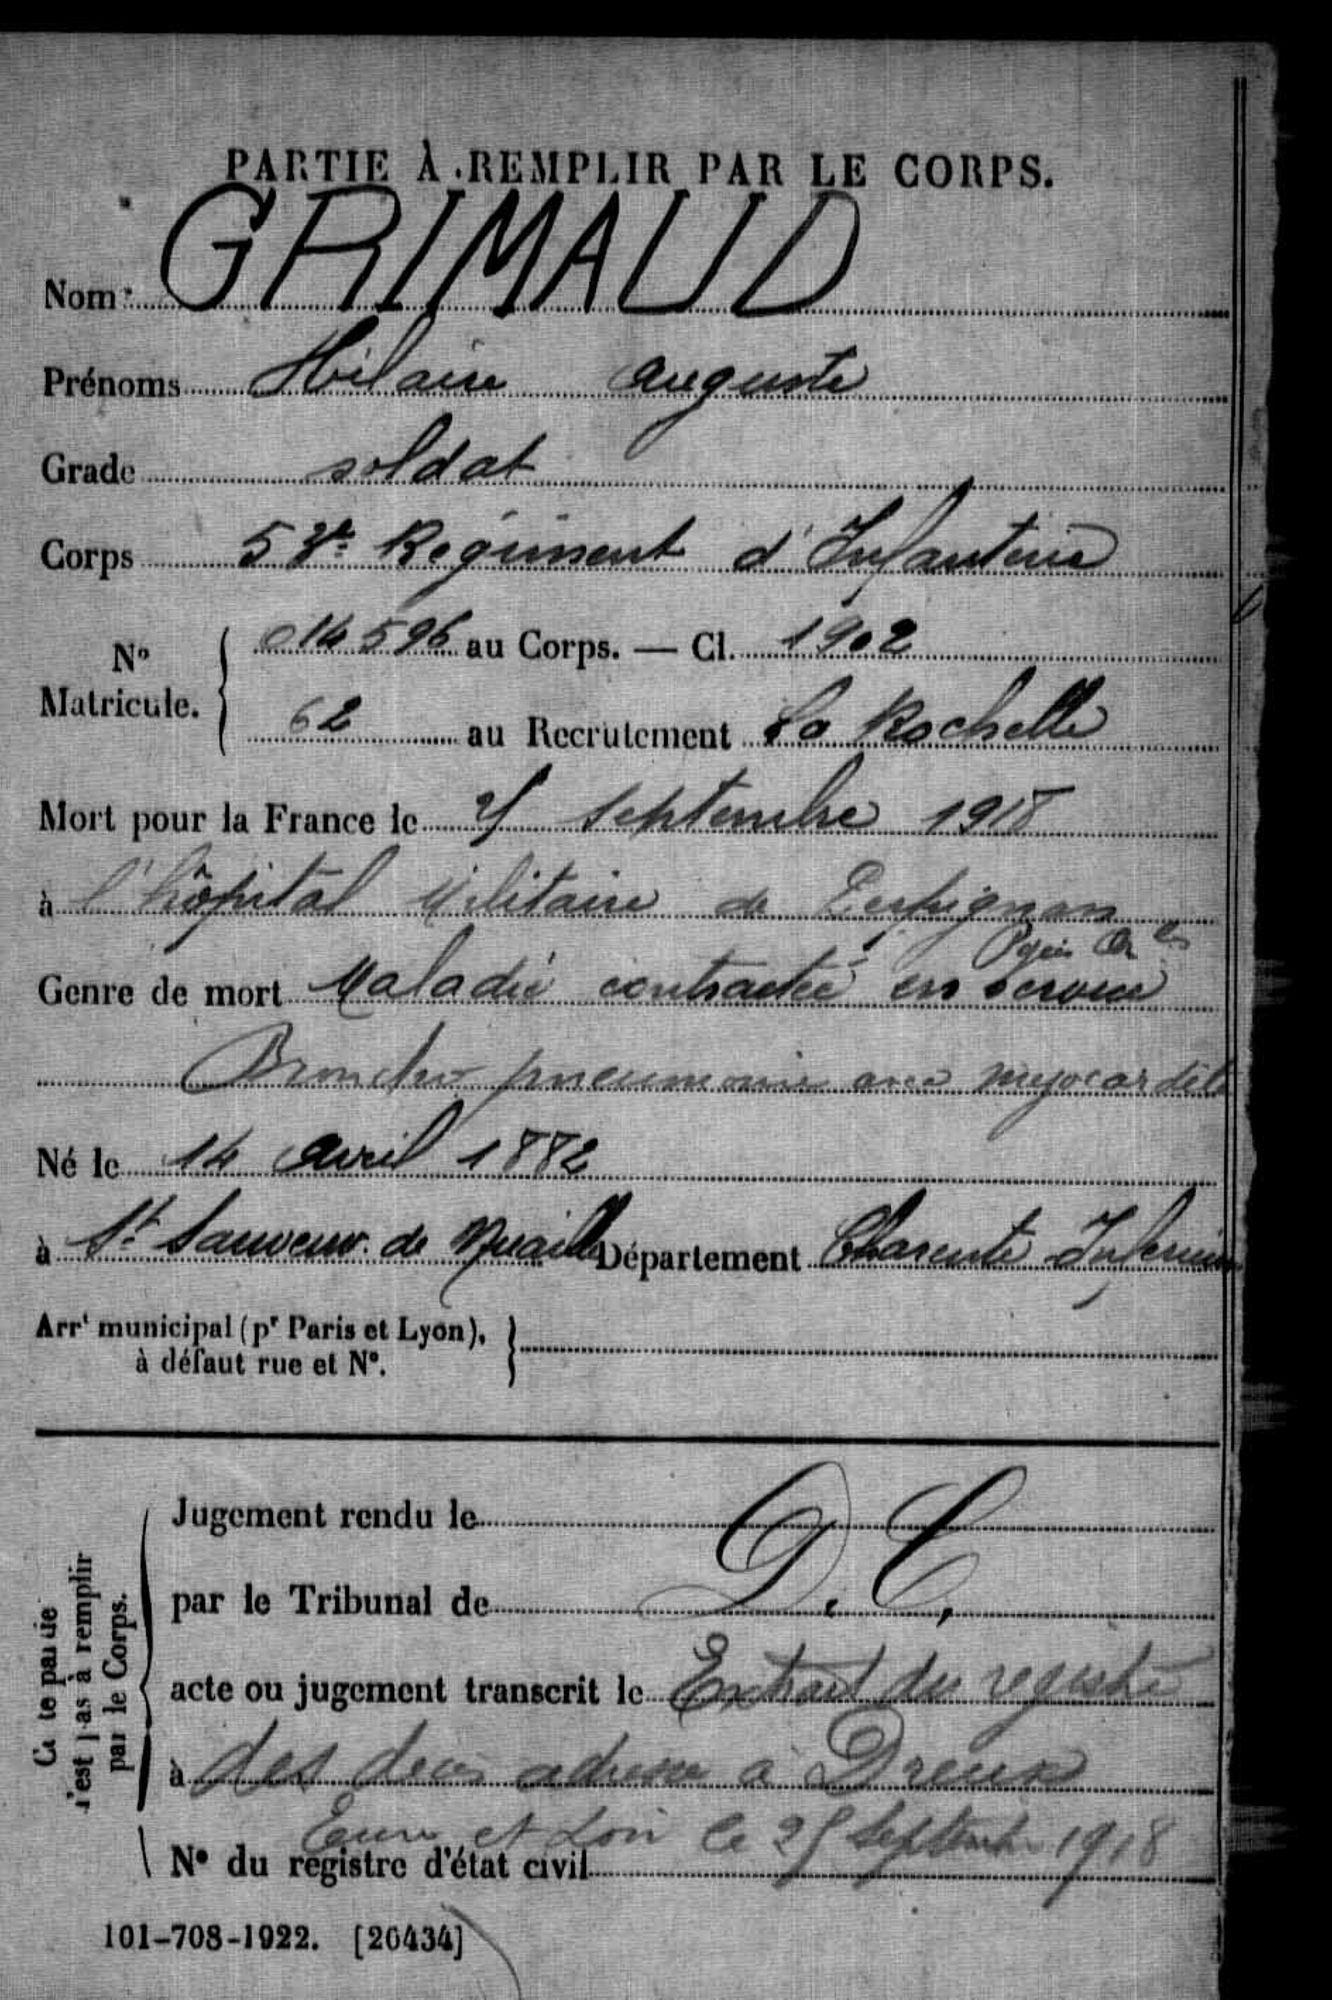 PARTIE À REMPLIR PAR LE CORPS.
Nom GRIMAUD
Prénoms Hilaire Auguste
Grade soldat
Corps 53e Régiment d'Infanterie
No Matricule. 014596 au Corps. — Cl. 1902
62 au Recrutement La Rochelle
Mort pour la France le septembre 1918
à l'hôpital Militaire de Perpignan
Pyrées Or les
Genre de mort Maladie contractée en service
Broncho pneumonie avec myocardite
Né le 14 avril 1882
à St Sauveur de Nuaillé Département Charente Inférieure
Arrt municipal (pr Paris et Lyon), à défaut rue et No.
Cette partie n'est pas à remplir par le Corps.
Jugement rendu le
par le Tribunal de D. C.
acte ou jugement transcrit le Extrait du registre
à des decès adresse à Dreux
Eure et Loir le 25 Septembre 1918
No du registre d'état civil
101-708-1922. [26434]